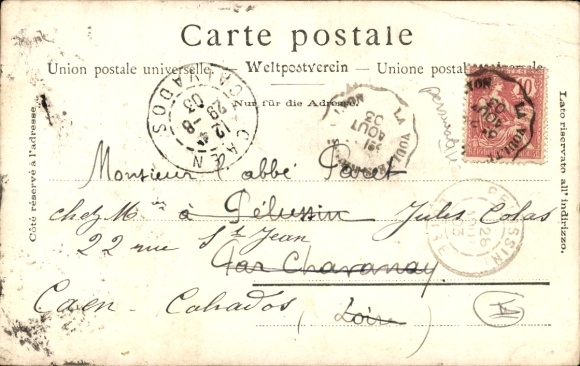 Carte postale
Union postale universelle. — Weltpostverein — Unione postale universale
Nur für die Adresse.
Côté réservé à l'adresse.
Lato riservato all' indirizzo.
CAEN
CALVADOS
12
29-8
03
LA VOUL
AOUT
03
10
LA VOUL
PELUSSIN
28
Monsieur l'abbé Paret
chez M. à Pélussin Jules Colas
22 rue St Jean
Par Chavanay
Caen - Calvados (Loire)